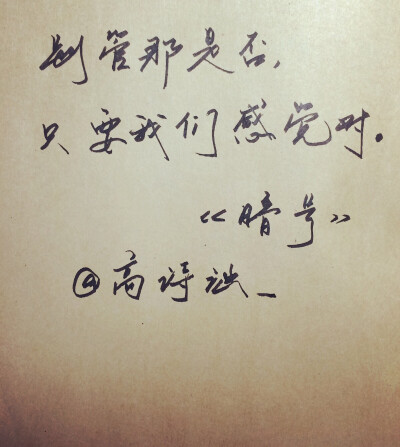 别管那是否，
只要我们感觉对。
《暗号》
@高